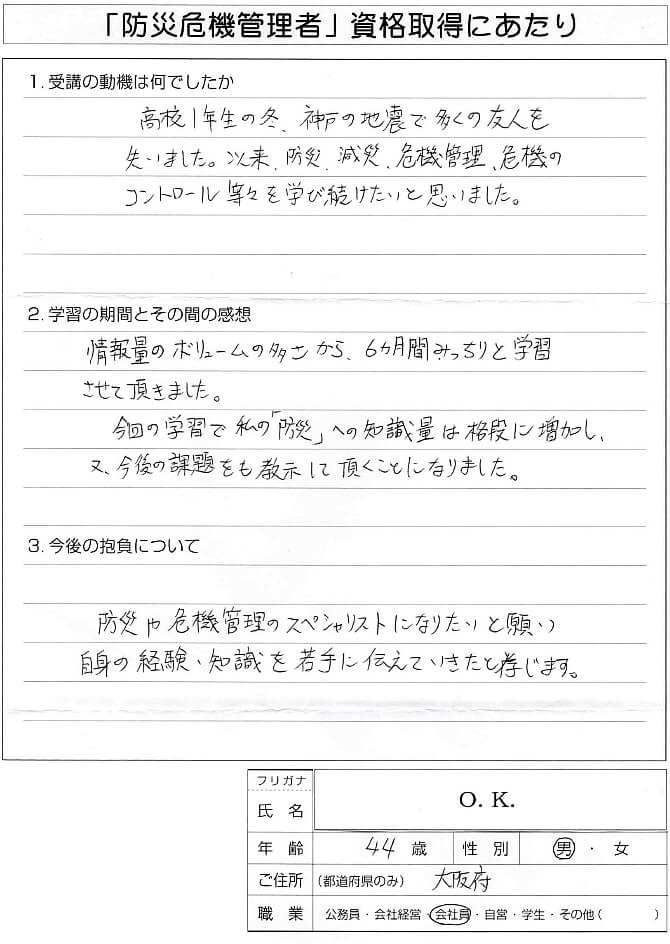 「防災危機管理者」資格取得にあたり
1. 受講の動機は何でしたか
高校1年生の冬、神戸の地震で多くの友人を
失いました。以来、防災、減災、危機管理、危機の
コントロール等々を学び続けたいと思いました。
2. 学習の期間とその間の感想
情報量のボリュームの多さから、6カ月間みっちりと学習
させて頂きました。
今回の学習で私の「防災」への知識量は格段に増加し、
又、今後の課題をも教示して頂くことになりました。
3. 今後の抱負について
防災や危機管理のスペシャリストになりたいと願い
自身の経験、知識を若手に伝えていきたと存じます。
フリガナ
氏 名 O. K.
年 齢 44 歳 性 別 男 ・ 女
ご住所 (都道府県のみ) 大阪府
職 業 公務員・会社経営・会社員・自営・学生・その他( )